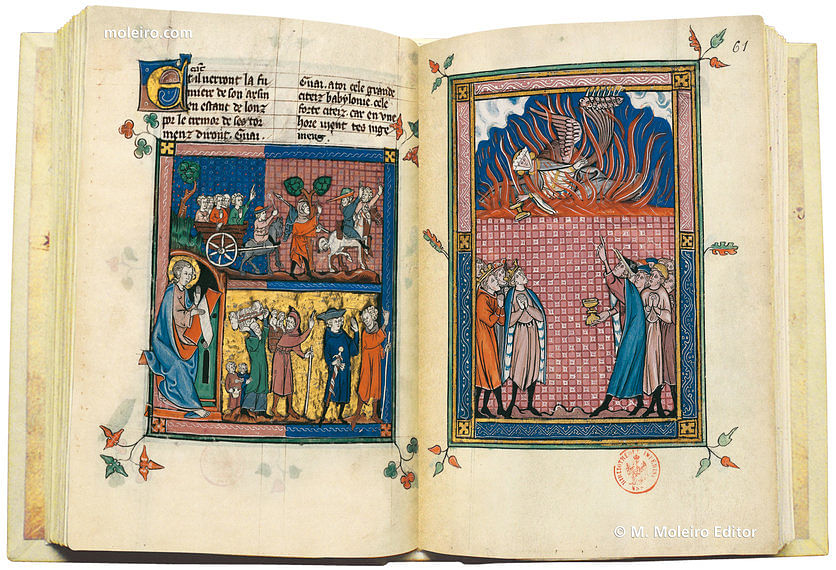 moleiro.com
61
tal verront la fu
miere de son arsin
en estant de lonz
por le cremor de ses tor
menz diront. Guai.
Guai. ator cele grande
citeiz babylonie. cele
forte citeiz. car en vne
hore uient tes iuge
mens.
© M. Moleiro Editor